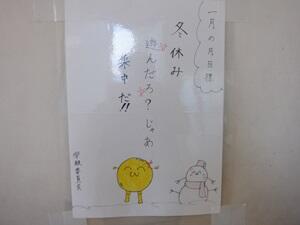 一月の月目標
冬休み
遊んだろ？じゃあ
集中だ!!
学級委員会